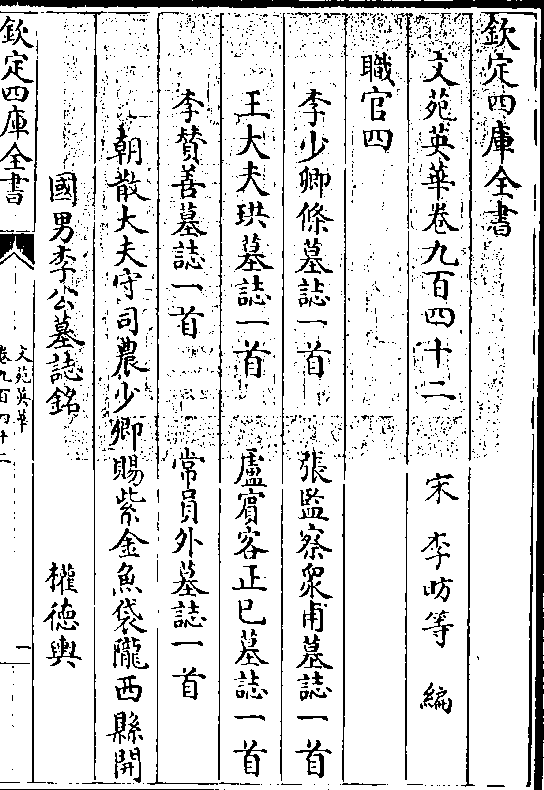 欽定四庫全書
文苑英華卷九百四十二
宋 李昉等 編
職官四
李少卿條墓誌一首 張監察衆甫墓誌一首
王大夫珙墓誌一首 盧賓客正已墓誌一首
李贊善墓誌一首 常員外墓誌一首
朝散大夫守司農少卿賜紫金魚袋隴西縣開
國男李公墓誌銘 權德輿
欽定四庫全書
文苑英華
卷九百四十二
一